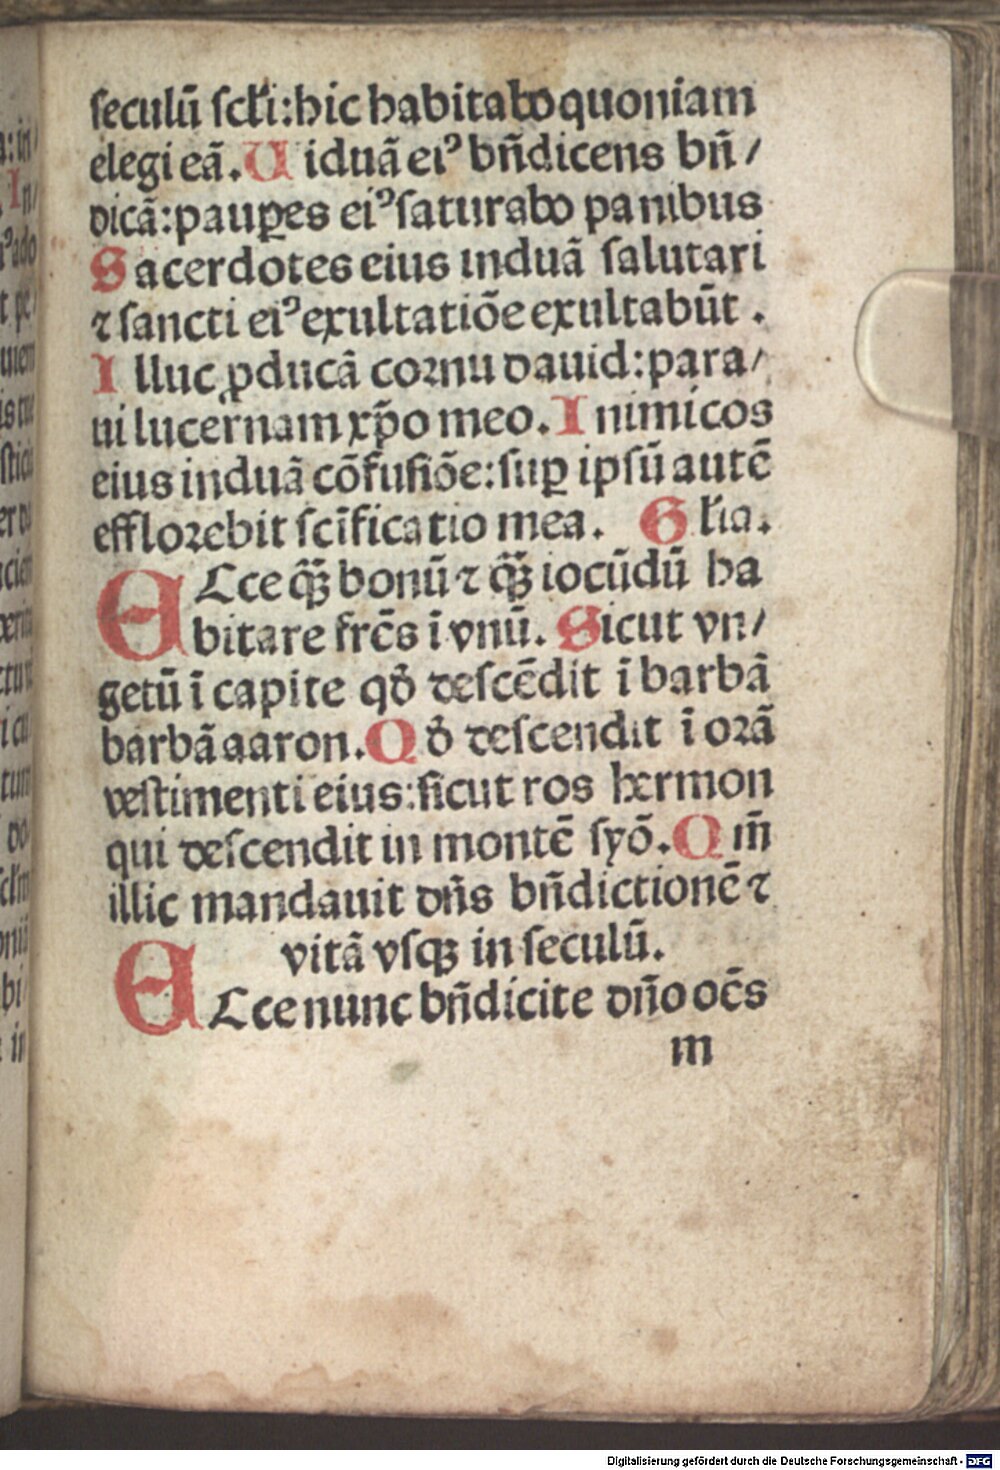 seculū scƚi: hic habitabo quoniam
elegi eā. Uiduā eiꝰ bn̄dicens bn̄/
dicā: pauꝑes eiꝰ saturabo panibus
Sacerdotes eius induā salutari
⁊ sancti eiꝰ exultatiōe exultabūt.
Illuc ꝓducā cornu dauid: para/
ui lucernam xp̄o meo. Inimicos
eius induā cōfusiōe: suꝑ ipsū autē
efflorebit scīficatio mea. Gƚia.
Ecce qͣꝫ bonū ⁊ qͣꝫ iocūdū ha
bitare fr̄es ī vnū. Sicut vn/
getū ī capite qd̄ descēdit ī barbā
barbā aaron. Qd̄ descendit ī orā
vestimenti eius: sicut ros hermon
qui descendit in montē syō. Qm̄
illic mandauit dn̄s bn̄dictionē ⁊
vitā vsqꝫ in seculū.
Ecce nunc bn̄dicite dn̄o oēs
m
Digitalisierung gefördert durch die Deutsche Forschungsgemeinschaft - DFG